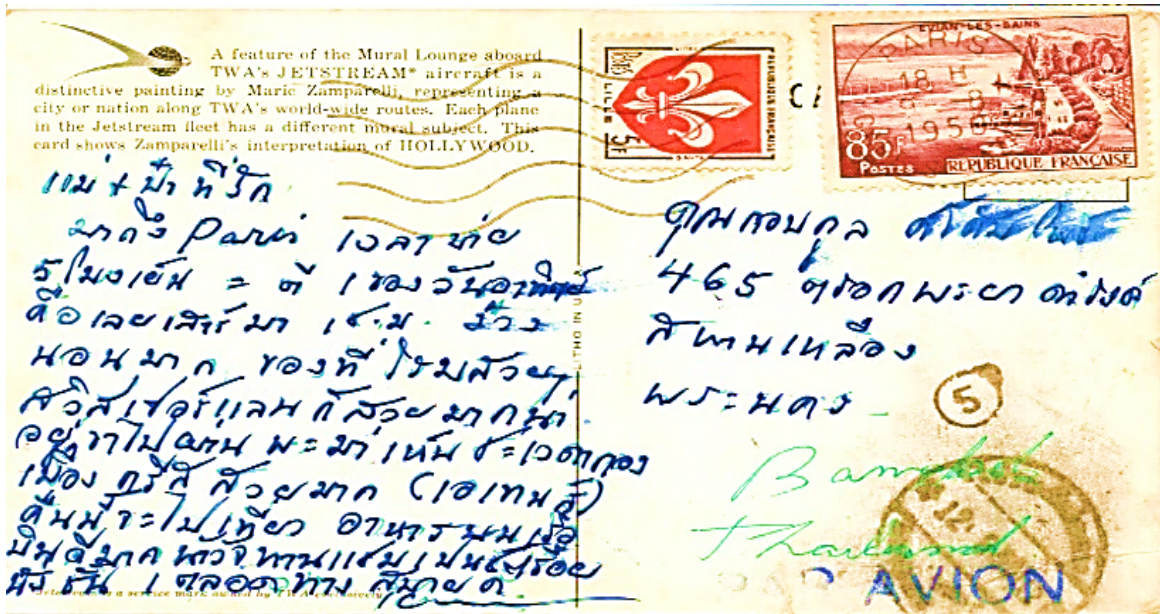 A feature of the Mural Lounge aboard
TWA's JETSTREAM* aircraft is a
distinctive painting by Mario Zamparelli, representing a
city or nation along TWA's world-wide routes. Each plane
in the Jetstream fleet has a different mural subject. This
card shows Zamparelli's interpretation of HOLLYWOOD.
แม่ + ป้า ที่รัก
มาถึง Paris เวลาบ่าย
5 โมงเย็น = ตี 1 ของวันอาทิตย์
คือเลยเสาร์มา ช.ม. ง่วง
นอนมาก ของที่โรมสวยๆ
สวิสเซอร์แลนก็สวยมากน่า
อยู่ ขาไปผ่านพะม่าเห็นชะเวดากอง
เมืองกรีสสวยมาก (เอเทนส์)
คืนนี้จะไปเที่ยว อาหารบนเรือ
บินดีมาก
ตลอดทาง สบายดี
Jetstream is a service mark owned by TWA exclusively
LITHO IN U.S.A.
5F
POSTES
REPUBLIQUE FRANÇAISE
LILLE
EVIAN-LES-BAINS
85F
POSTES
REPUBLIQUE FRANÇAISE
PARIS
18 H
8
คุณกอบกุล
465 ตรอกพระยาดำรงค์
สพานเหลือง
พระนคร
5
Bangkok
Thailand
12
PAR AVION